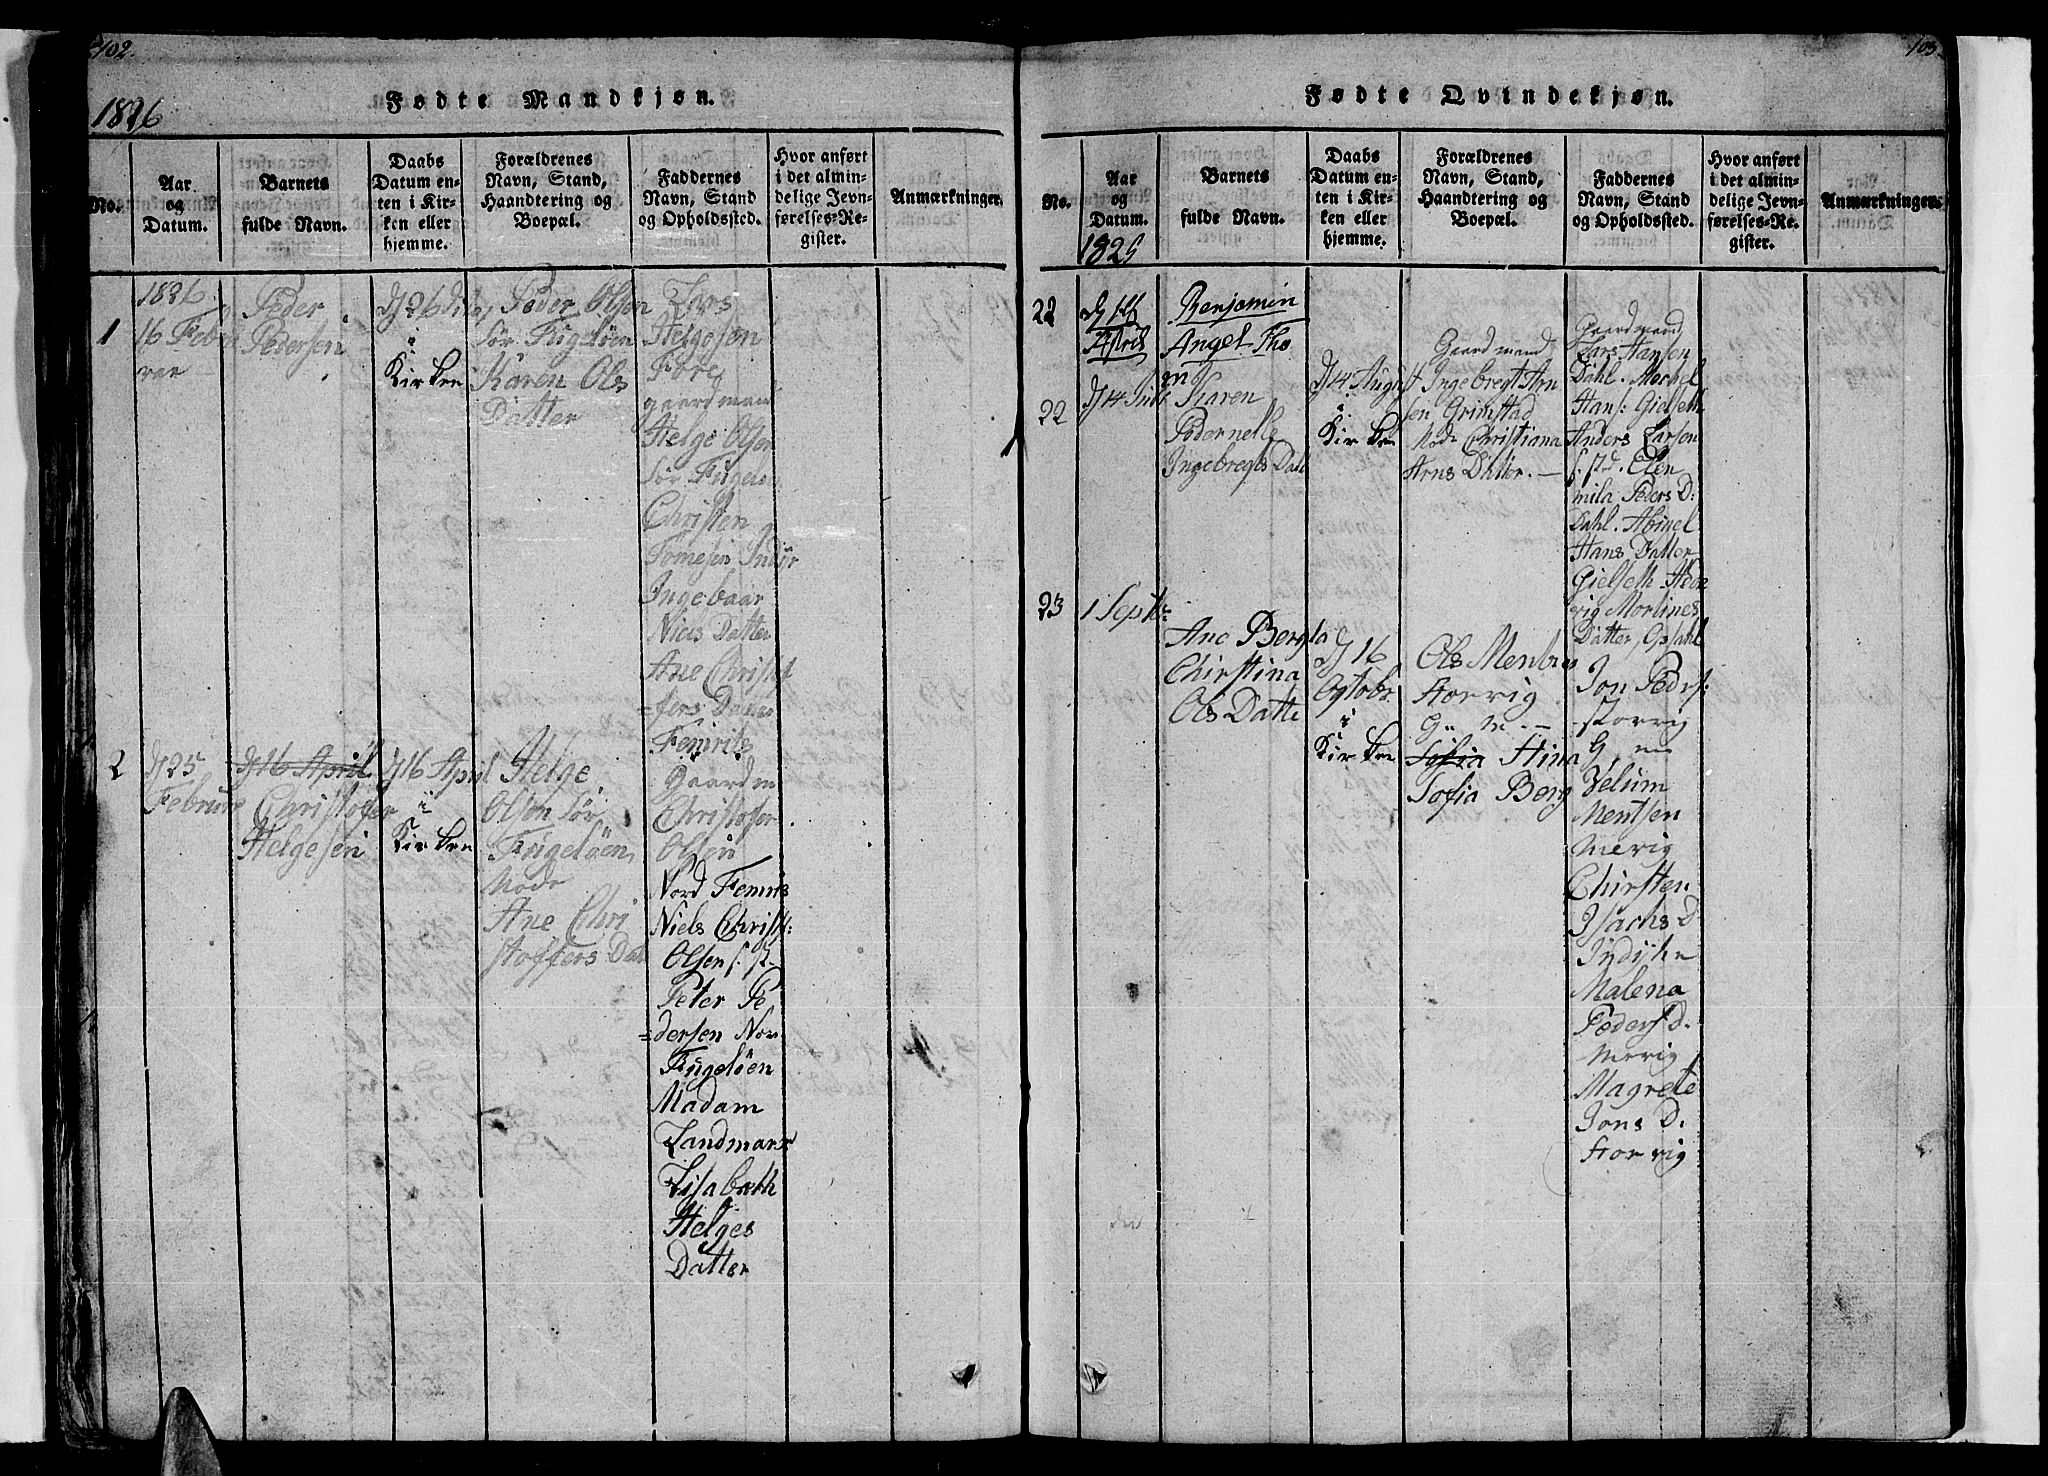 102.
1826
Fødte Mandkjøn.
No.
Aar
og
Datum.
Barnets
fulde Navn.
Daabs
Datum en-
ten i Kir-
ken eller
hjemme.
Forældrenes
Navn, Stand,
Haandtering og
Boepæl.
Faddernes
Navn, Stand
og Opholdssted.
Hvor anført
i det almin-
delige Jevn-
førelses-Re-
gister.
Anmærkninger.
1
1826
16 Febru
rar
Peder
Pedersen
D 26 Dito
i
Kirken
Peder Olsen
Sør Fugløen
Karen Ols
Datter
Lars
Helgesen
Fore
gaardman
Helge Olsen
Sør Fugløen
Christen
Tomesen Indÿr
Ingebaar
Niels Datter
Ane Christof
=fers Datter
Femris
2
D 25
Februar
D 16 April
Christofer
Helgesen
D 16 April
i
Kirken
Helge
Olsen Sør
Fugeløen
Mode
Ane Chri
stoffers Dat
Gaardm
Christofer
Olsen
Nord Femris
Niels Christ:
Olsen S. St
Peter Pe
=dersen Nor
Fugeløen
Madam
Landmark
Lisabeth
Helges
Datter
103.
Fødte Qvindekjøn.
No.
Aar
og
Datum.
1825
Barnets
fulde Navn.
Daabs
Datum en-
ten i Kir-
ken eller
hjemme.
Forældrenes
Navn, Stand,
Haandtering og
Boepæl.
Faddernes
Navn, Stand
og Opholdssted.
Hvor anført
i det almin-
delige Jevn-
førelses-Re-
gister.
Anmærkninger.
22
Benjamin
Angel Tho
22
D 14 Juli
Karen
Pedernelle
Ingebregts Datt
D 14 Augus
i
Kirken
Gaardmand
Ingebregt Arn
sen Grimstad
Mode Christiana
Arns Datter. —
Gaardmand
Lars Hansen
Dahl. Mechel
Hans: Gielseth
Anders Larsen
S. St. Elen
mila Peders D:
Dahl. Abigel
Hans Datter
Gielseth
Mortines
Datter, Opsahl
23
1 Septbr:
Ane Bergta
Chirstina
Ols Datte
D 16
Octobr.
i
Kirken
Ols Mentsen
Storvig
G: m: —
Sofia Stina
Sofia Berg
Jon Peders:
Storvig
G m
Velum
Mentsen
Mevig
Chirsten
Isachs D
Malena
Peders D.
Mevig
Magrete
Jons D.
Storvig